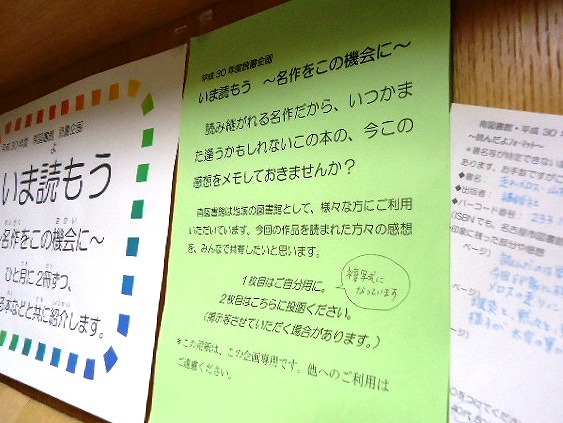 平成30年度 南図書館 読書企画
いま読もう
～名作をこの機会に～
ひと月に2冊ずつ、
本などと共に紹介します。
平成30年度読書企画
いま読もう ～名作をこの機会に～
読み継がれる名作だから、いつかま
た逢うかもしれないこの本の、今この
感想をメモしておきませんか？
南図書館は地域の図書館として、様々な方にご利用
いただいています。今回の作品を読まれた方々の感想
を、みんなで共有したいと思います。
1枚目はご自分用に。
2枚目はこちらに投函ください。
(掲示等させていただく場合があります。)
複写式に
なっています
＊この用紙は、この企画専用です。他へのご利用は
ご遠慮ください。
南図書館・平成30
～読んだよﾌｫｰﾏｯﾄ～
＊書名等が特定できない
あります。お手数ですがご
◆書名：
◆出版者：
◆バーコード番号： 233
(ISBNでも。名古屋市図書
印象に残った部分や感想
ページ)
ページ)